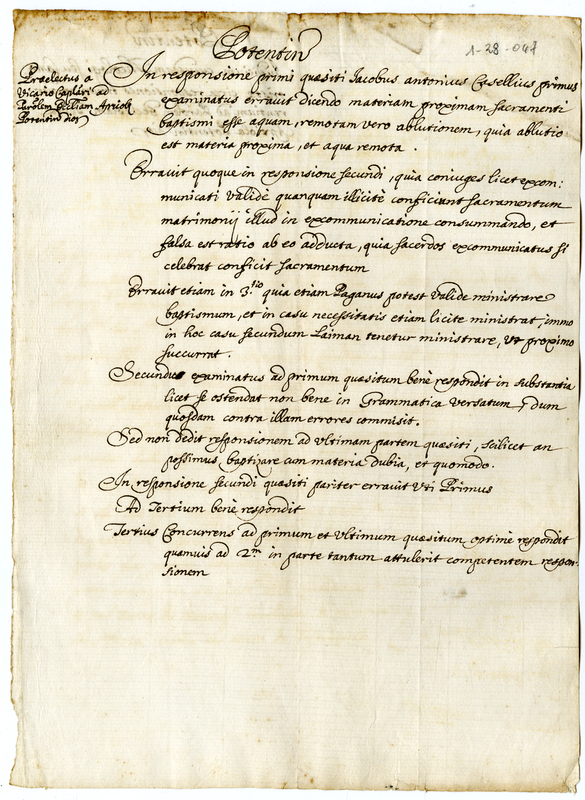 Potentin
1-28-047
Praelectus a
Vicario Caplari ad
Parolem Eccliam
Potentin
In responsione primi quaesiti Iacobus antonius Casellius primus
examinatus erravit dicendo materiam proximam sacramenti
baptismi esse aquam, remotam vero ablutionem, quia ablutio
est materia proxima, et aqua remota.
Erravit quoque in responsione secundi, quia coniuges licet excom:
municati validè quanquam illicitè conficiunt sacramentum
matrimonij illud in excommunicatione consummando, et
falsa est ratio ab eo adducta, quia sacerdos excommunicatus si
celebrat conficit sacramentum
Erravit etiam in 3.tio quia etiam Paganus potest validè ministrare
baptismum, et in casu necessitatis etiam licite ministrat, immo
in hoc casu secundum Laiman tenetur ministrare, ut proximo
succurrat.
Secundus examinatus ad primum quaesitum benè respondit in substantia
licet se ostendat non bene in Grammatica versatum, dum
quosdam contra illam errores commisit.
Sed non dedit responsionem ad ultimam partem quaesiti, scilicet an
possimus baptizare cum materia dubia, et quomodo.
In responsione secundi quaesiti pariter erravit uti Primus
Ad Tertium benè respondit
Tertius Concurrens ad primum et ultimum quaesitum optimè respondit
quamvis ad 2.m in parte tantum attulerit competentem respon-
sionem